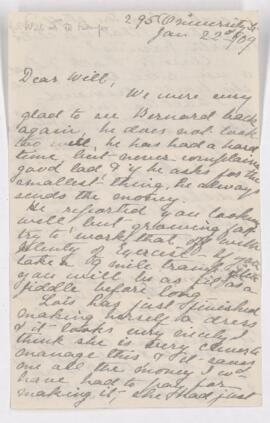 295 University St
Jan 22nd 09
Dear Will,
We were very
glad to see Bernard back
again, he does not look
too well, he has had a hard
time but never complains
good lad & if he asks for the
smallest thing, he always
sends the money.
He reported you looking
well but growing fat
try to work that off with
plenty of exercise if you
take a 9 mile tramp
you will be as fit as a
fiddle before long
Lois has just finished
making herself a dress
& it looks very nicely I
think she is very clever to
manage this & it saves
me all the money I wd
have had to pay for
making it. She had just